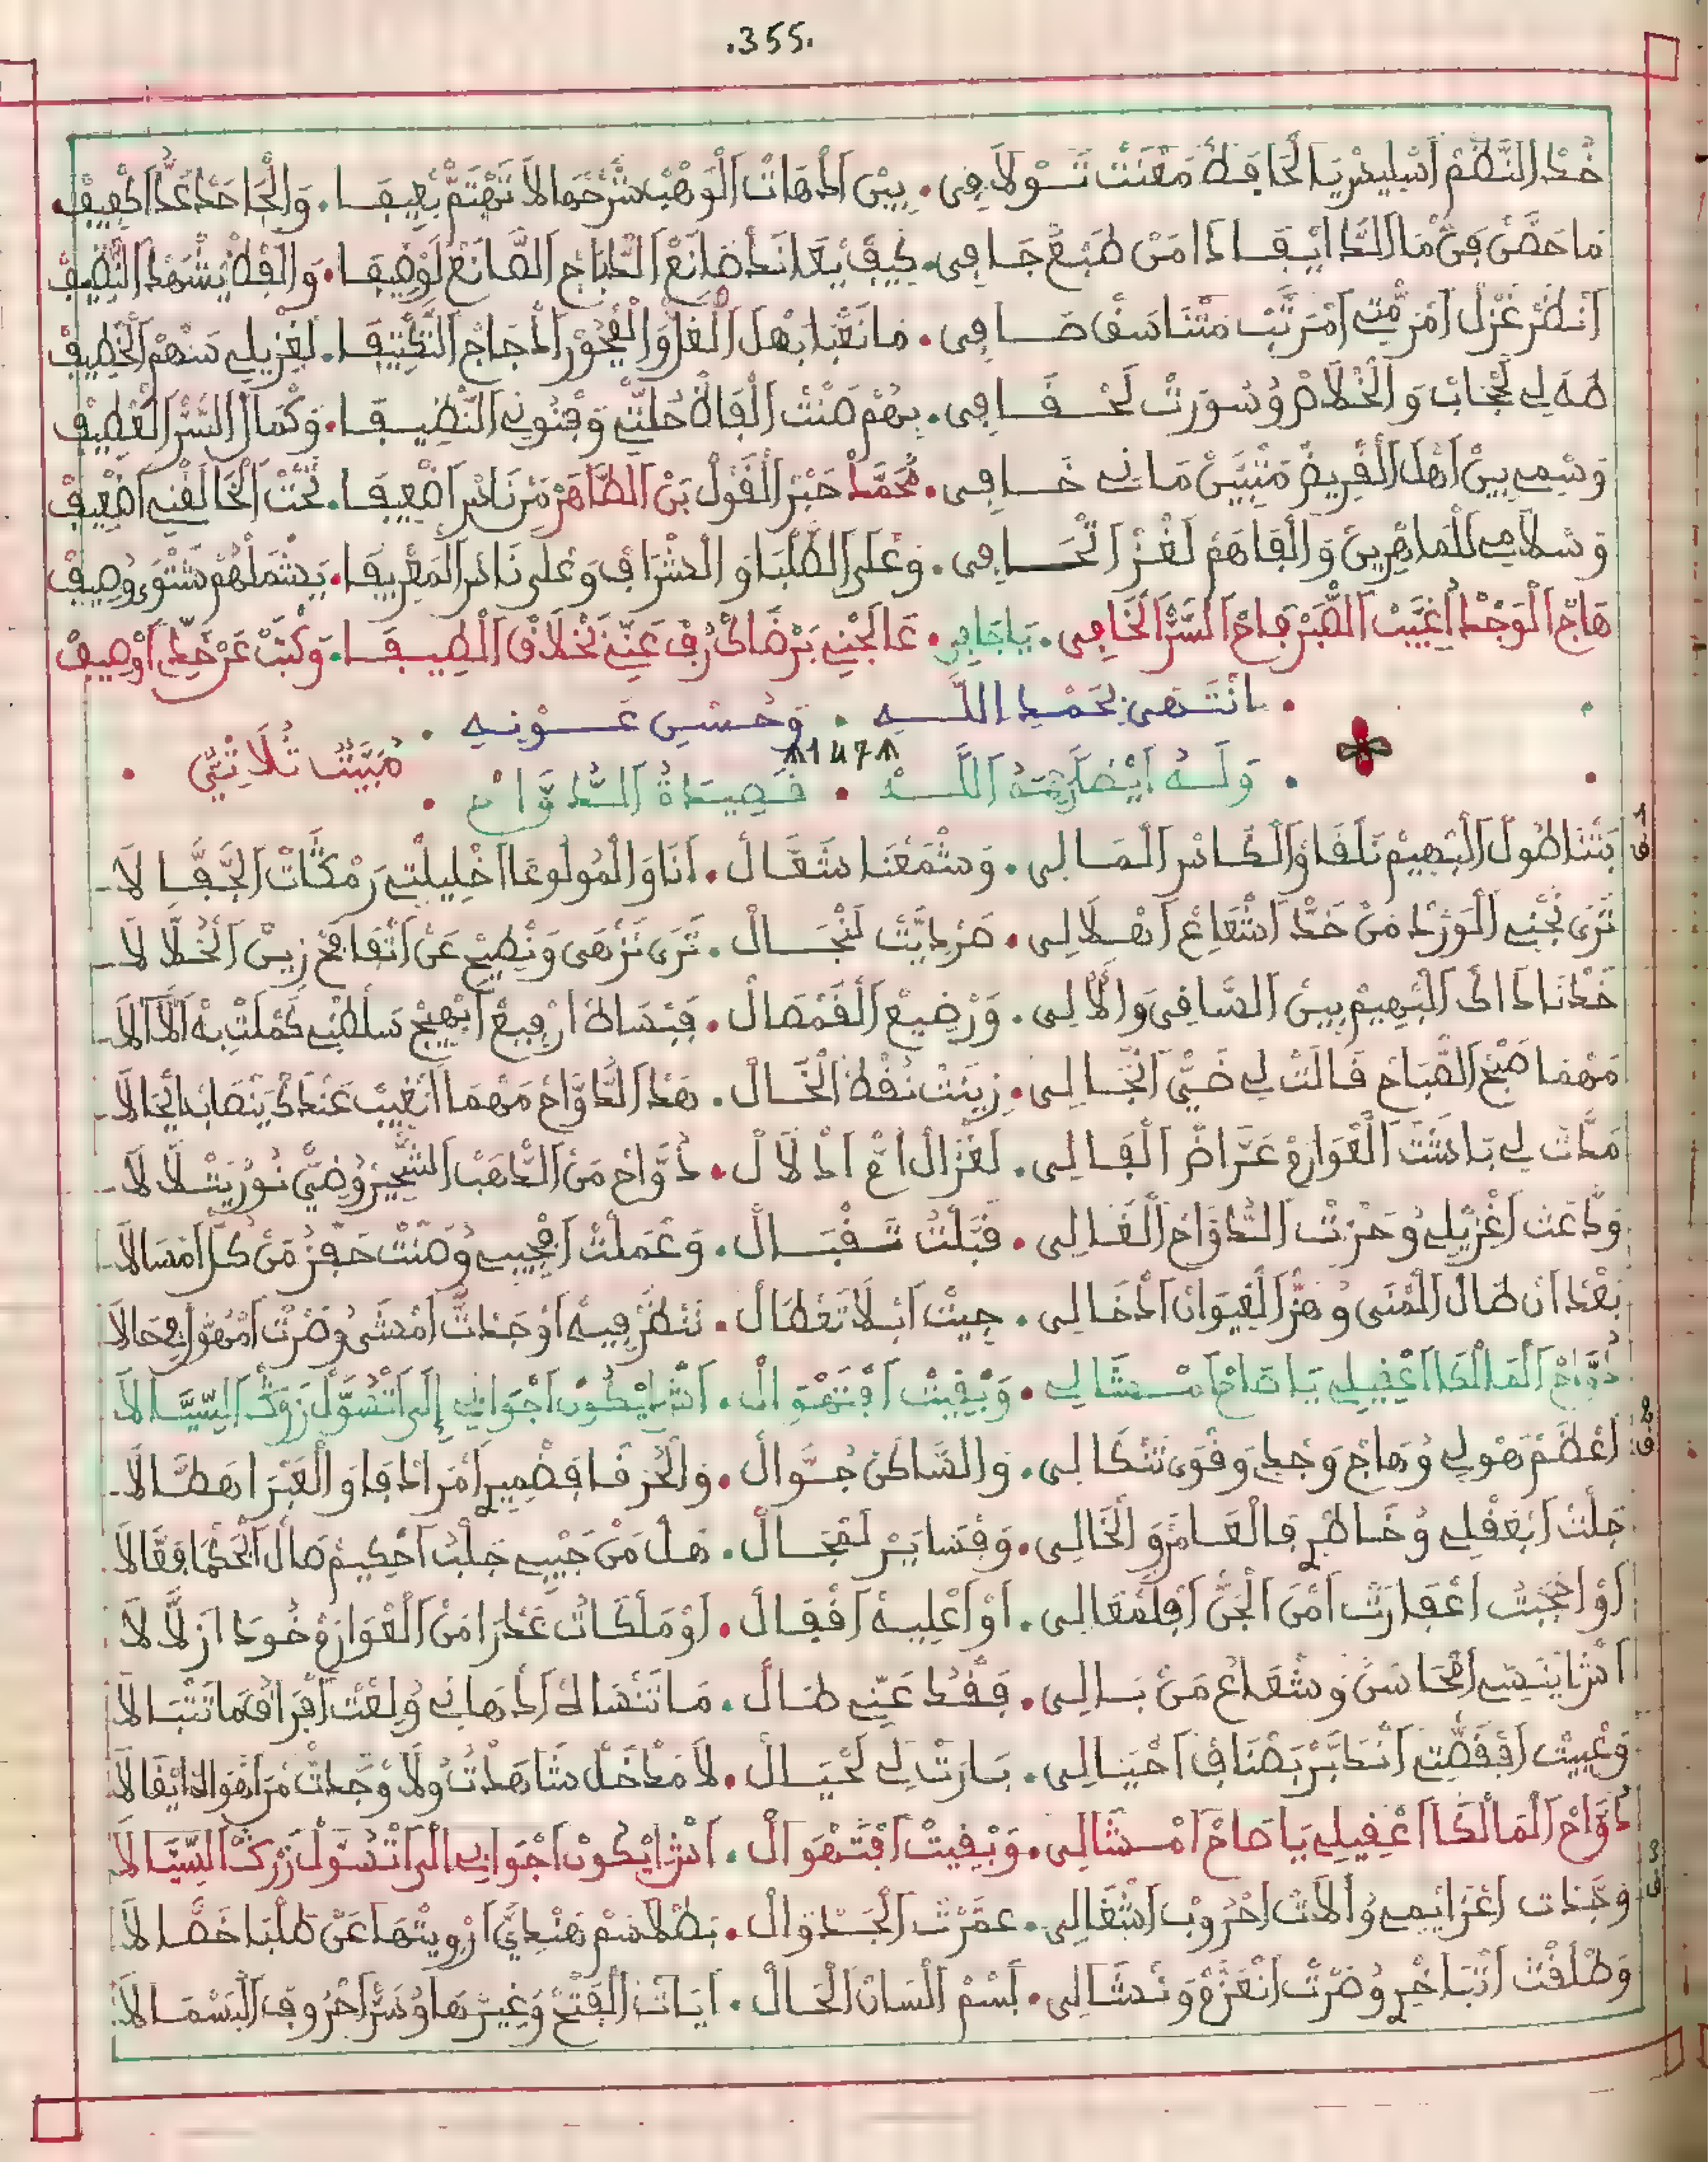 .355.
خُذْ النَّظْمْ اَسْلِيسْ يَا الْحَافِظْ مَعْنَتْ قَوْلَافِي. بِينْ اَدْهَاتْ الْوَهْبْ شَرْحْهَا لَا تَهْتَمْ بْعِيفَا. وَالْجَاحَدْ عَدُّ اَكْفِيفْ.
مَا حَضَّى فِي مَا الدَّايْقَا دَا مَنْ طَبْعْ جَافِي. كِيفْ يْعَانَدْ صَانَعْ الدِّبَاجْ الصَّانَعْ لَوْضِيفَا. وَالْفَظْ يَشْهَدْ النّْضِيفْ
اَنْظَرْ غَزْلْ اَمْرَمْتِي اَمْرَتَّبْ مَتْنَاسَقْ صَافِي. مَا نَعْبَا بَهْلْ الْغُلْ وَالْفْجُورْ اَدْجَاجْ التَّكْتِيفَا. لَغْزِيلِي مَنْهُمْ اَخْطِيفْ
طَهَ لِي حْجَابْ وَالْخْلَاصْ وُسُورَتْ لَحْقَافِي. بِهُمْ صَنْتْ الْفَاظْ حُلّْتِي وَفْنُونِي النّْظِيفَا. وَكْمَالْ السَّرْ الْعْطِيفْ
وَسْمِي بِينْ اَهْلْ الْقْرِيضْ مَتْبَيَّنْ مَانِي خَافِي. مُحَمَّدْ حَبْرْ الْقَوْلْ بَنْ الطَّاهَرْ مَنْ نَاسْ اَضْعِيفَا. تَحْتْ اَلْخَالَقْنِي اَضْعِيفْ
وَسْلَامِي لَلْمَاهْرِينْ وَالْفَاهَمْ لَغْزْ اَتْحَافِي. وَعْلَى الطُّلْبَا وَالشّْرَافْ وَعْلَى نَاسْ الْمَعْرِيفَا. يَشْمَلْهُمْ شَتْوَ وُصِيفْ
هَاجْ الْوَجْدْ اُغَيَّبْ الصّْبَرْ فَاحْ السَّرْ الْخَافِي. يَا جَافِي. عَالَجْنِي بَرْضَاكْ رُفْ عَنِّي بَخْلَاقْ الْطِيفَا. وَكْتَبْ عَنْ خَدِّي اَوْصِيفْ
. انْتَهَى بِحَمْدِ اللَّهِ . وَحُسْنِ عَوْنِهِ .
1147
. وَلَهُ اَيْضًا رَحِمَهُ اللَّهُ . قَصِيدَةُ الدُّوَّاحْ . مُبَيَّتْ ثُلَاثِي .
بَتْنَا طُولْ الْبْهِيمْ نَلْقَاوْ الْكَاسْ الْمَالِي. وَشْمَعْنَا شَعَّالْ. اَنَا وَالْمُولُوعَا اخْلِيلْتِي رَمْكَّاتْ الْجَفَّالَا
تَرَى نَجْنِي الْوَرْدْ مَنْ خَدّْ اَشْعَاعْ اَهْلَالِي. صَرْدِيَّتْ لَنْجَالْ. تَرَى نَزْهَى وَنْصِيحْ عَنْ اَتْفَافَحْ زِينْ الْخُلَّالَا
خَدْنَا دَاكْ الْبْهِيمْ بِينْ السَّاقِي وَالْآلِي. وَرْضِيعْ الْقَمْصَالْ. فَبْسَاطْ اَرْفِيعْ اَبْهِيجْ سَلْطْنِي كَمْلَتْ بِهْ الْآلَا
مَهْمَا صْبَحْ الصّْبَاحْ قَالَتْ لِي ضَيّْ اَنْجَالِي. زِينَتْ نُقْطْ الْخَالْ. هَدْ الدُّوَّاحْ مَهْمَا اَنْغِيبْ عَنْدَكْ يَنْصَابْ اِيخَالَا
مَدَّاتْ لِي تَاشَتْ الْعْوَارَمْ عَرَّاضْ الْفَالِي. لَغْزَالْ اَعْ اَدْلَالْ. دُوَّاحْ مَنْ الدّْهَبْ الشّْجِيرْ وُضِيّْ نُورْ يَتْلَالَا
وَدَّعْتْ اَغْزِيلِي وُحَزْتْ الدُّوَّاحْ الْغَالِي. قَبَّلْتُ تَقْبَالْ. وَعْمَلْتْ اَفْجِيبِي وُصَنْتْ حَقُّزْ مَنْ كُلْ اَمْسَالَا
بَعْدْ اَنْ طَالْ الْمْنَى وُهَزّْ الْغِيوَانْ اَدْخَالِي. جِيتْ اَبْلَا تَعْطَالْ. نَنْظَرْ فِيهْ اَوْجَدْتْ اَمْشَى وُصَرْتْ اَمْهَوَّلْ فْحَالَا
دُوَّاحْ الْمَالْكَا اَعْقِيلِي يَا صَاحْ اَمْشَالِي. وَبْقِيتْ اَفْتَهْوَالْ. اَشْ اِيكُونْ اَجْوَابِي اِلَى اَتْسَوَّلْ زَرْكْ السِّيَالَا
اَعْظَمْ هَوْلِي وُهَاجْ وَجْدِي وَقْوَى تَنْكَالِي. وَالسَّاكَنْ جُوَّالْ. وَالْحُزْقَا فَضْمِيرْ اَمْرَادْفَا وَالْعَبْرَا هَطَّالَا
جَلْتْ اَبْعَقْلِي وُخَاطْرِي فَالْعَامَرْ وَالْخَالِي. وَفْسَايَرْ لَمْجَالْ. هَلْ مَنْ جِيبِي جَلْبُ اَحْكِيمْ صَالْ اَلْحَكْمَا فَقَّالَا
اَوْ اَنْجَبْتُ اَعْفَارَتْ اَمْنَ الْجَنّْ اَفْلَمْعَالِي. اَوْ اَعْلِيهْ اَقْفَالْ. اَوْ مَلْكَاتُ عَدْرَا مَنْ الْعْوَارَمْ خُودَا زَلَّالَا
اَشْ اِينَسِّي اَمْحَاسْنُ وُشْعَاعُ مَنْ بَالِي. فَقْدُ عَنِّي طَالْ. مَا تَنْسَاهْ اَدْهَانِي وُلِعْتْ اَفْرَاقُ مَا تَتْبَالَا
وَعْيِيتْ اَفْقَصّْتِي اَنْدَبَّرْ بَصْنَافْ اَحْيَالِي. بَارَتْ لِي لَحْيَالْ. لَا مَدْخَلْ شَاهَدْتُ وَلَا وْجَدْتْ مَرَاهْوَادْ اَيْقَالَا
دُوَّاحْ الْمَالْكَا اَعْقِيلِي يَا صَاحْ اَمْشَالِي. وَبْقِيتْ اَفْتَهْوَالْ. اَشْ اِيكُونْ اَجْوَابِي اِلَى اَتْسَوَّلْ زَرْكْ السِّيَالَا
وَجْدَات اَعْزَايْمِي وُأَلَاتْ اَحْرُوبْ اَشْغَالِي. عَمَّرْتْ الْجَدْوَالْ. بَطْلَاسَمْ هَنْدِيَّ اَرْوِيتْهَا عَنْ طُلْبَا خَصَّالَا
وَطْلَقْتْ اَتْبَاخْرِي وُصَرْتْ اَنْعَزَّمْ وَنْشَالِي. بَسْمْ اَلْسَانْ الْحَالْ. اَيَاتْ الْفَتْحْ وَغِيرْهَا وُسَرّْ اَحْرُوفْ الْبَسْمَالَا